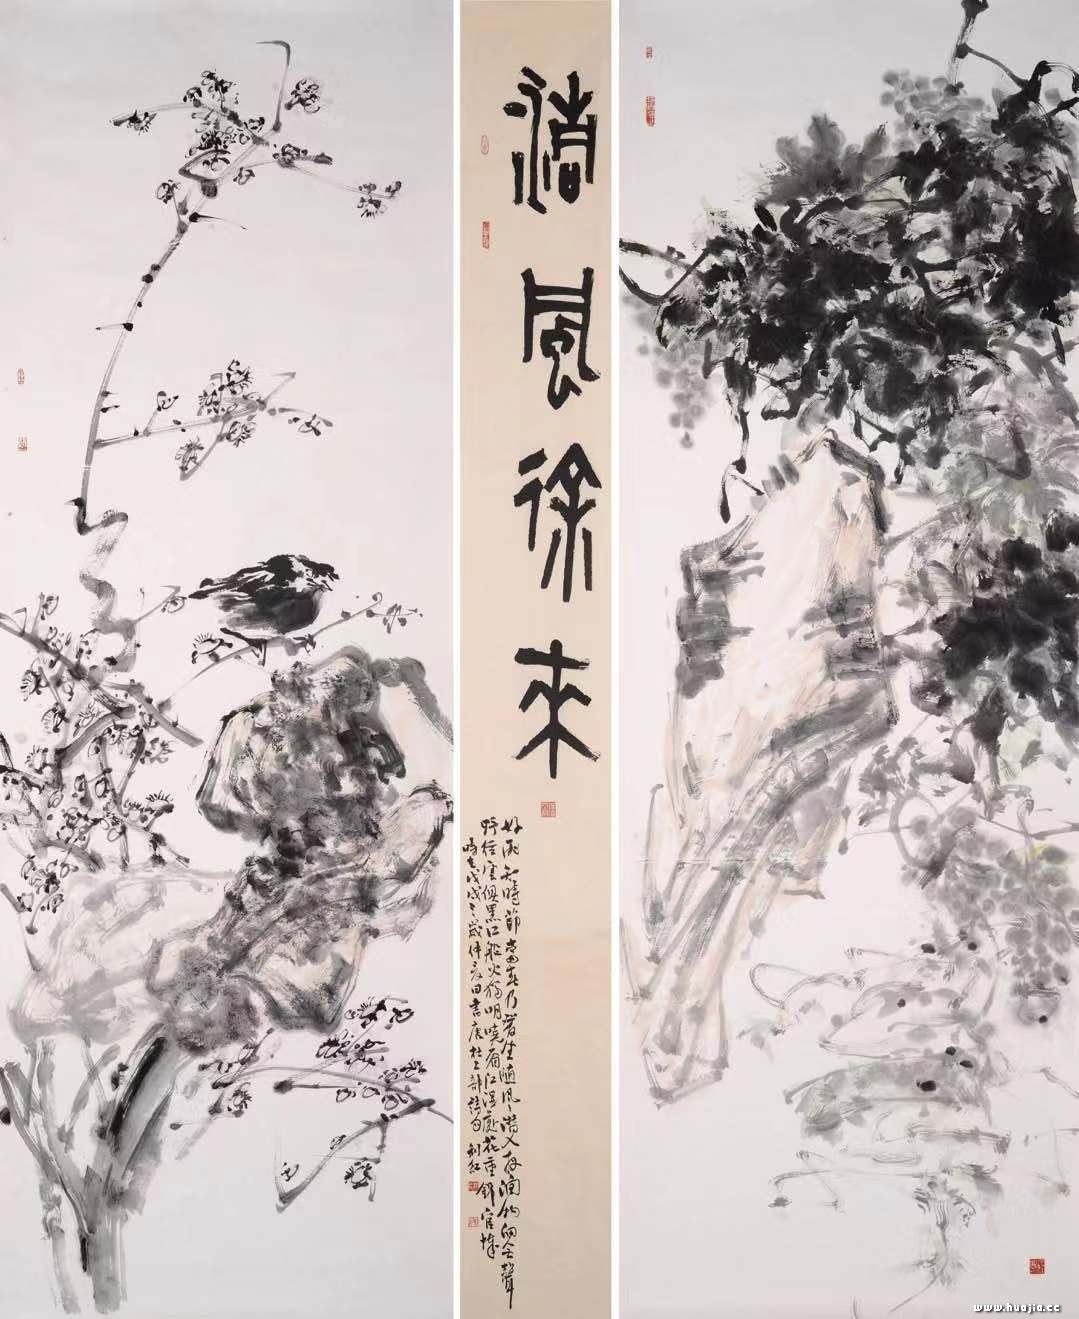 清風徐来
好雨知時節當春乃發生隨風潛入夜潤物細無聲
野徑雲俱黑江船火獨明曉看紅濕處花重錦官城
時在戊戌之歲仲夏日書唐杜工部詩句
www.huajia.cc